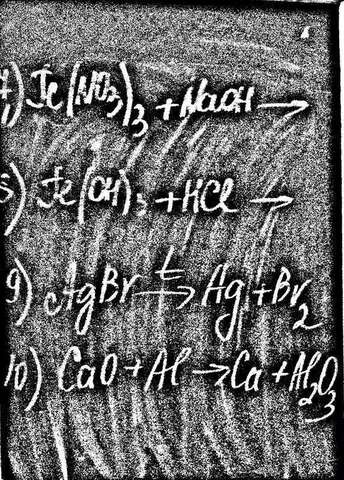 7) Fe(NO₃)₃ + NaOH →
8) Fe(OH)₃ + HCl →
9) AgBr t→ Ag + Br₂
10) CaO + Al → Ca + Al₂O₃